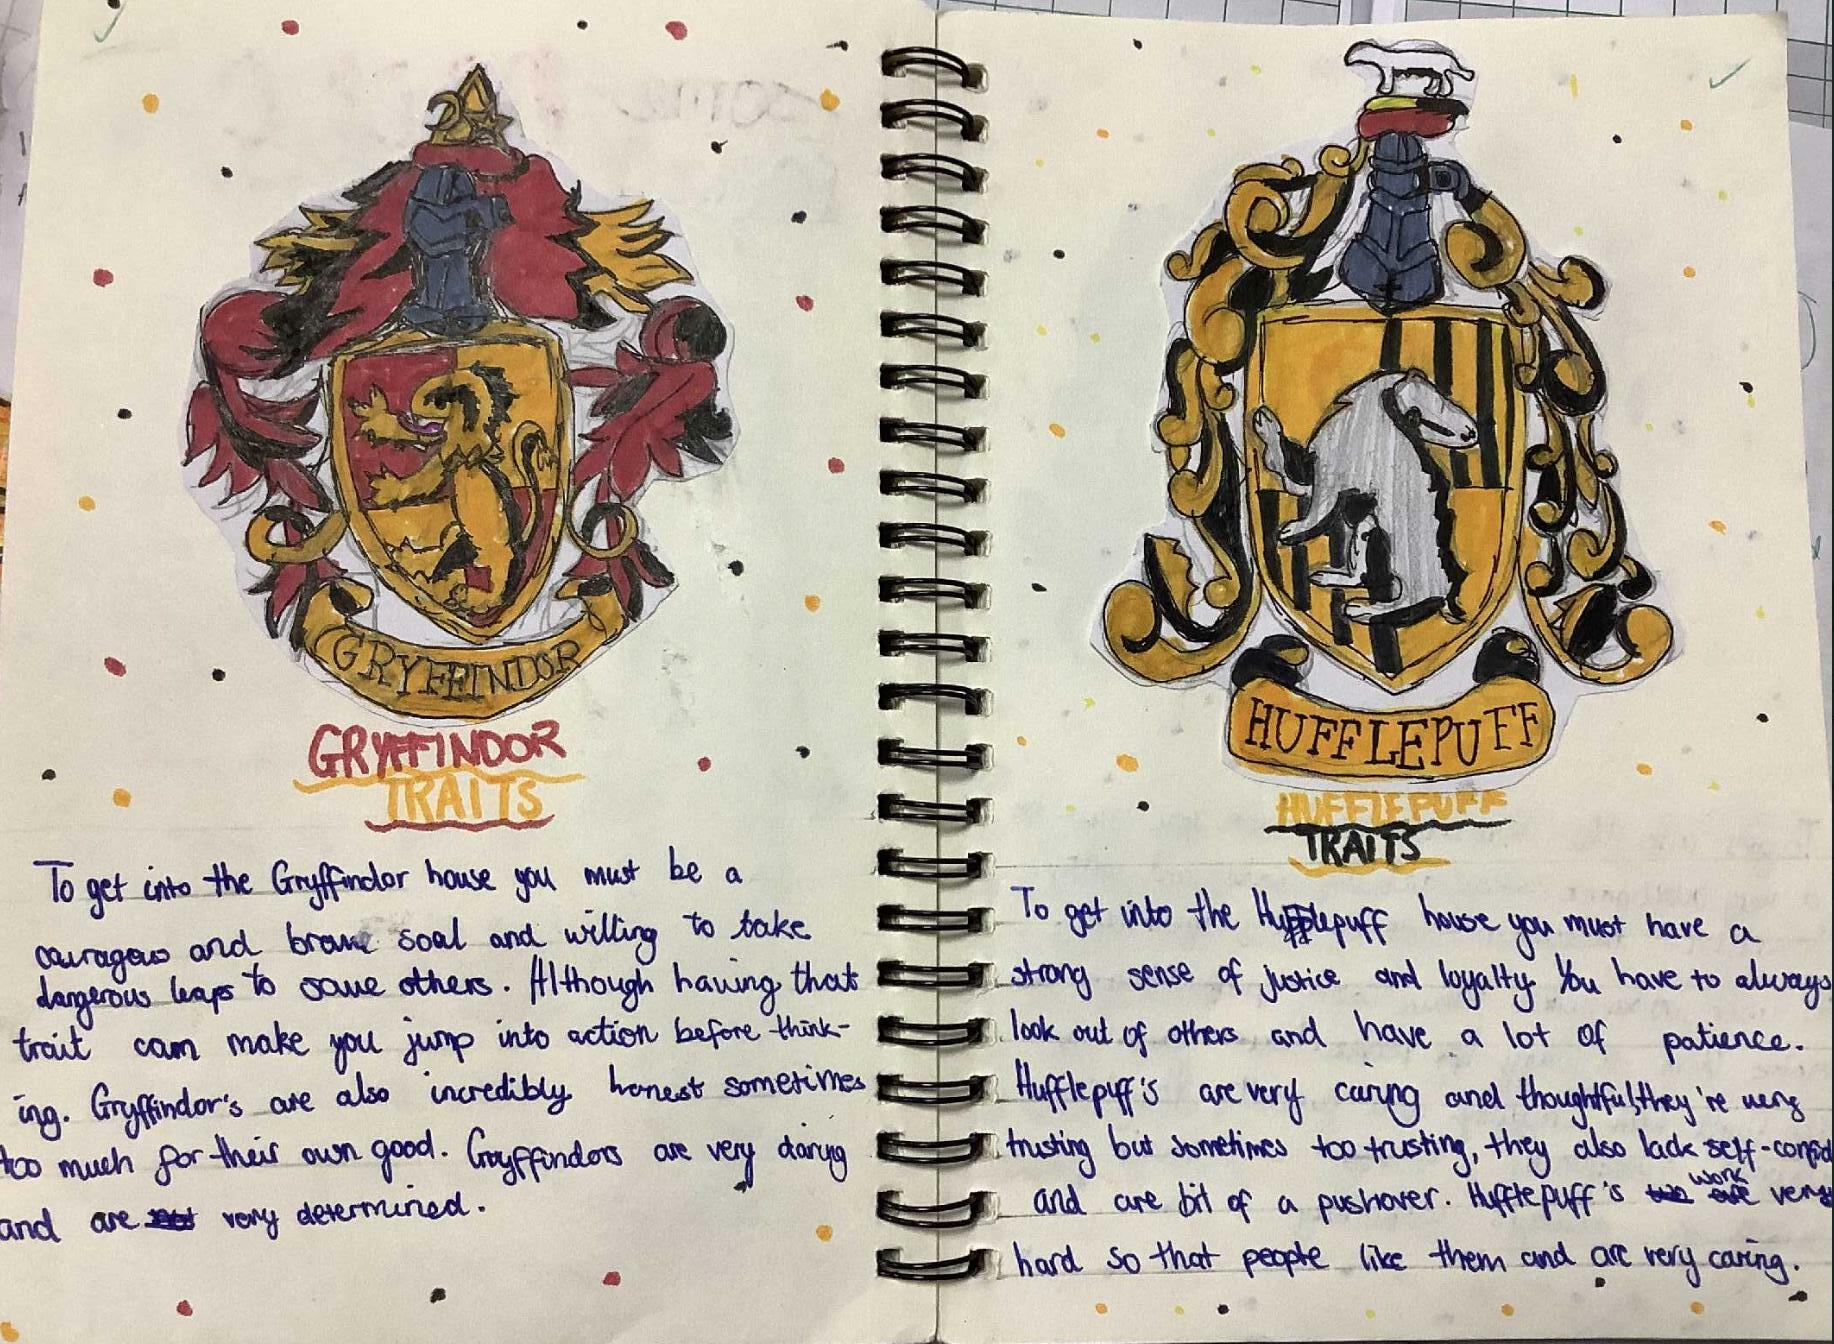 GRYFFINDOR
GRYFFINDOR
TRAITS
To get into the Gryffindor house you must be a
couragous and brave soal and willing to take
dangerous leaps to save others. Although having that
trait can make you jump into action before think-
ing. Gryffindor's are also incredibly honest sometimes
too much for their own good. Gryffindors are very daring
and are very determined.
HUFFLEPUFF
HUFFLEPUFF
TRAITS
To get into the Hufflepuff house you must have a
strong sense of justice and loyalty. You have to always
look out of others and have a lot of patience.
Hufflepuff's are very caring and thoughtful, they're very
trusting but sometimes too trusting, they also lack self-confid
and are bit of a pushover. Hufflepuff's work very
hard so that people like them and are very caring.